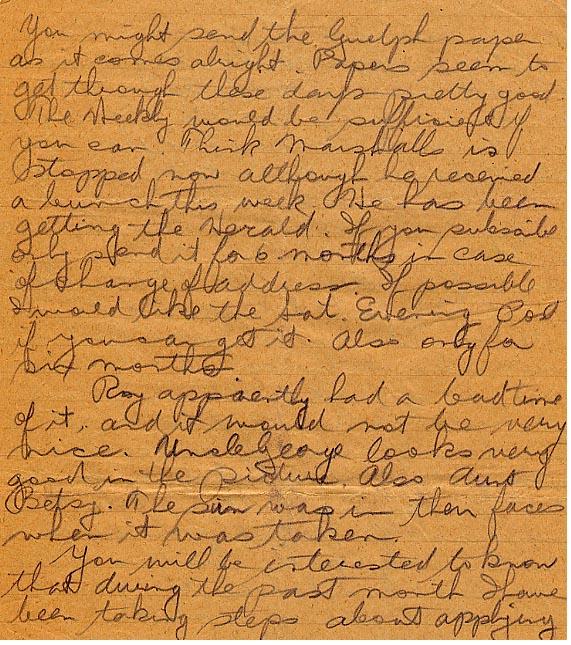 You might send the Guelph paper
as it comes alright. Papers seem to
get through these days pretty good.
The Weekly would be sufficient if
you can. Think Marshalls is
stopped now although he received
a bunch this week. He has been
getting the Herald. If you subscibe
only send it for 6 months in case
of change of address. If possible
I would like the Sat. Evening Post
if you can get it. Also only for
six months
Roy apparently had a bad time
of it, and it would not be very
nice. Uncle George looks very
good in the picture. Also Aunt
Betsy. The sun was in their faces
when it was taken.
You will be interested to know
that during the past month I have
been taking steps about applying